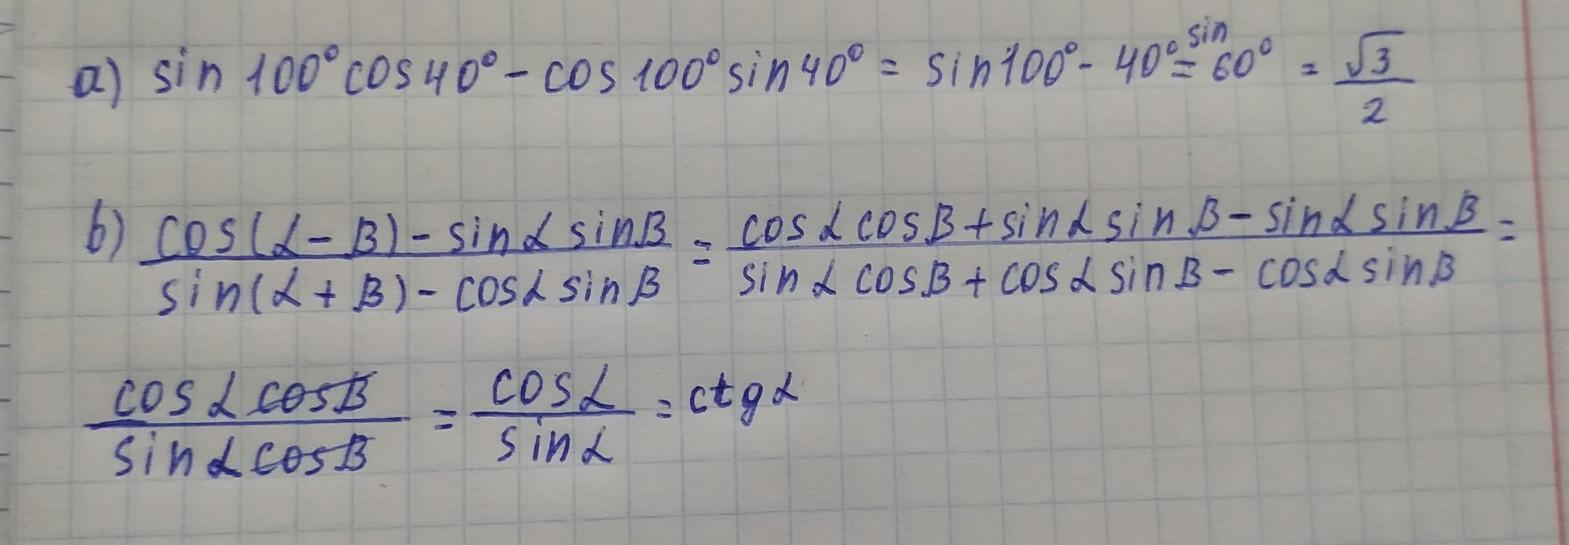 a) sin 100° cos 40° - cos 100° sin 40° = sin 100° - 40° = sin 60° = √3/2
b) cos(α - β) - sin α sin β / sin(α + β) - cos α sin β = cos α cos β + sin α sin β - sin α sin β / sin α cos β + cos α sin β - cos α sin β =
cos α cos β / sin α cos β = cos α / sin α = ctg α